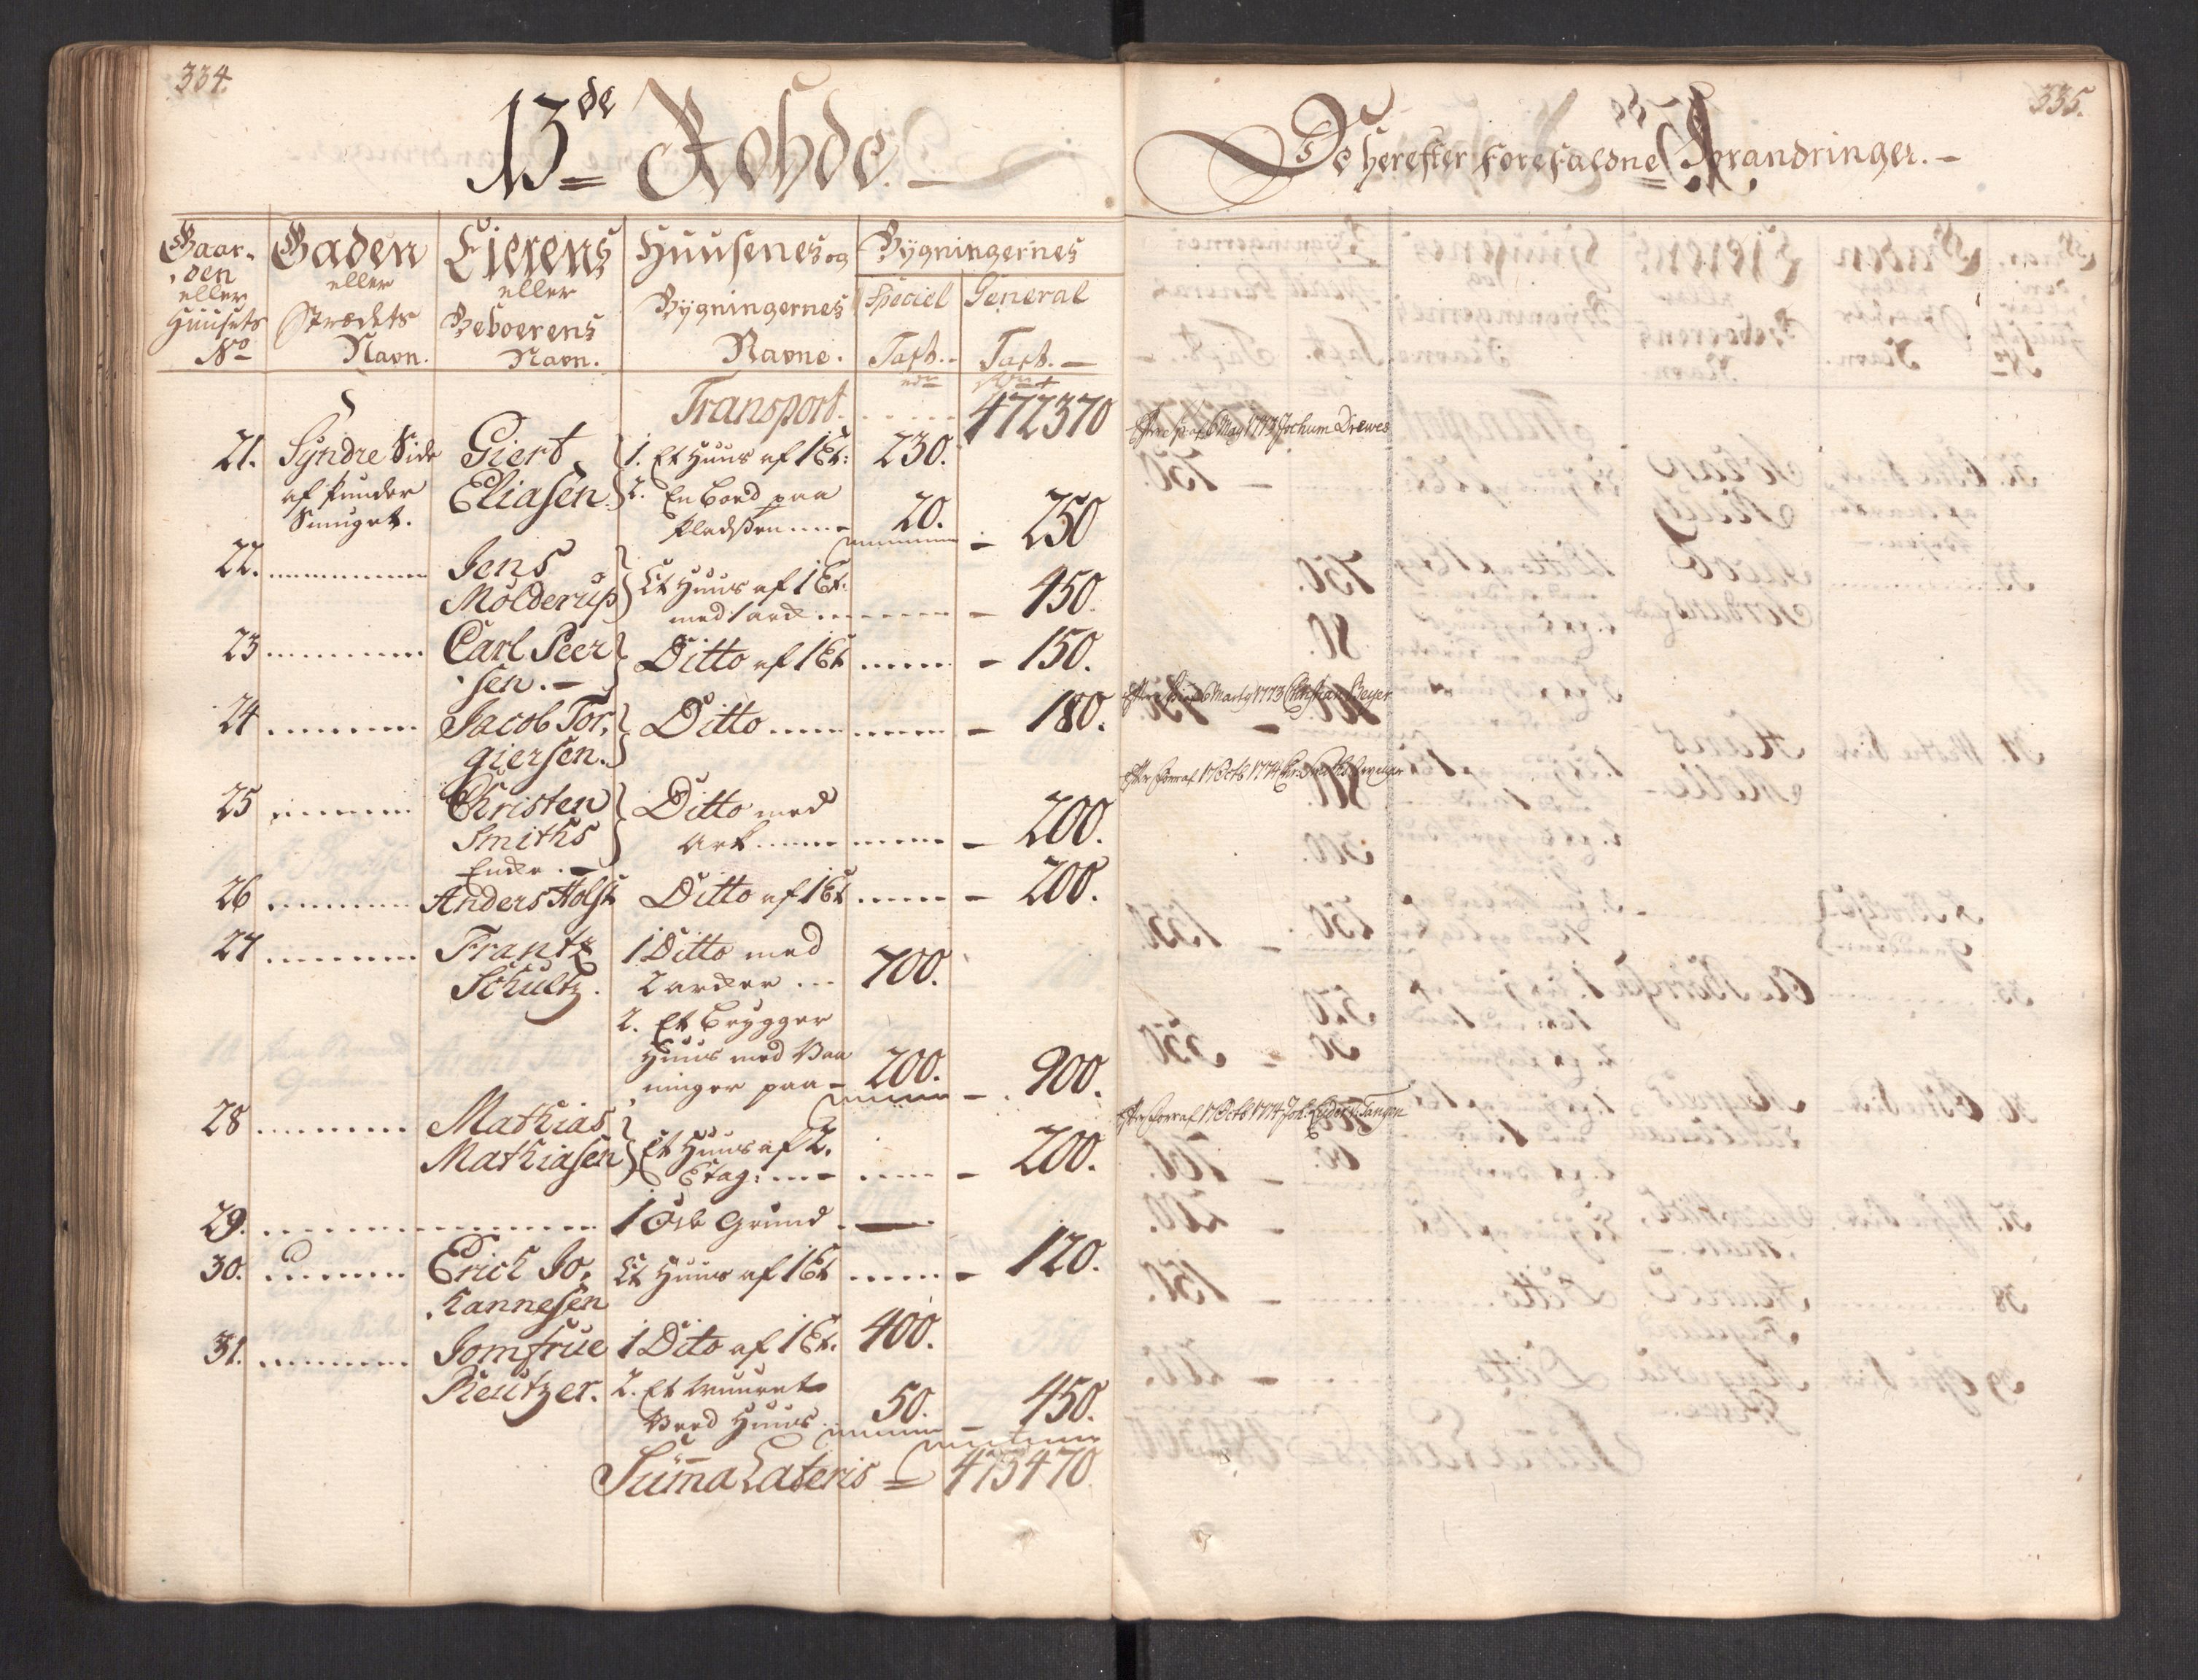 334.
13de Rohde.
Gaar-
den
eller
Huusets
No
Gaden
eller
Strædets
Navn.
Eierens
eller
Beboerens
Navn.
Huusenes og
Bygningernes
Navne.
Bygningernes
Speciel
Taxt.
General
Taxt.
Transport 472370
21. Syndre Side
af Kunder
Smuget.
Giert
Eliasen.
1. Et Huus af 1 Et: 230.
2. En Boed paa
Pladsen 20. - 250
22. Jens
Molderup
Et Huus af 1 Et.
med 1 ark - 450.
23 Carl Peer
sen.
Ditto af 1 Et - 150.
24 Jacob Tor,
giersen.
Ditto - 180.
25 Christen
Smiths
Enke.
Ditto med
Ark - 200.
26 Anders Holst Ditto af 1 Et - 200.
27 Frantz
Schultz.
1 Ditto med
2 arker 700.
2. Et Brygger
Huus med Vaa
ninger paa - 200. - 900.
28 Mathias
Mathiasen
Et Huus af 2.
Etag: - 200.
29. 1 Øde Grund
30. Erich Jo,
hannesen
Et Huus af 1 Et - 120.
31. Jomfrue
Reutzer.
1 Dito af 1 Et. 400.
2. Et muuret
Veed Huus 50. - 450.
Summa Lateris 475470.
335.
De herefter forefaldne Forandringer.
6 May 1773 Jochum Drewes
6 Marty 1773 Christian Beyer
17 Octb 1774
17 Octb 1774 Joh: